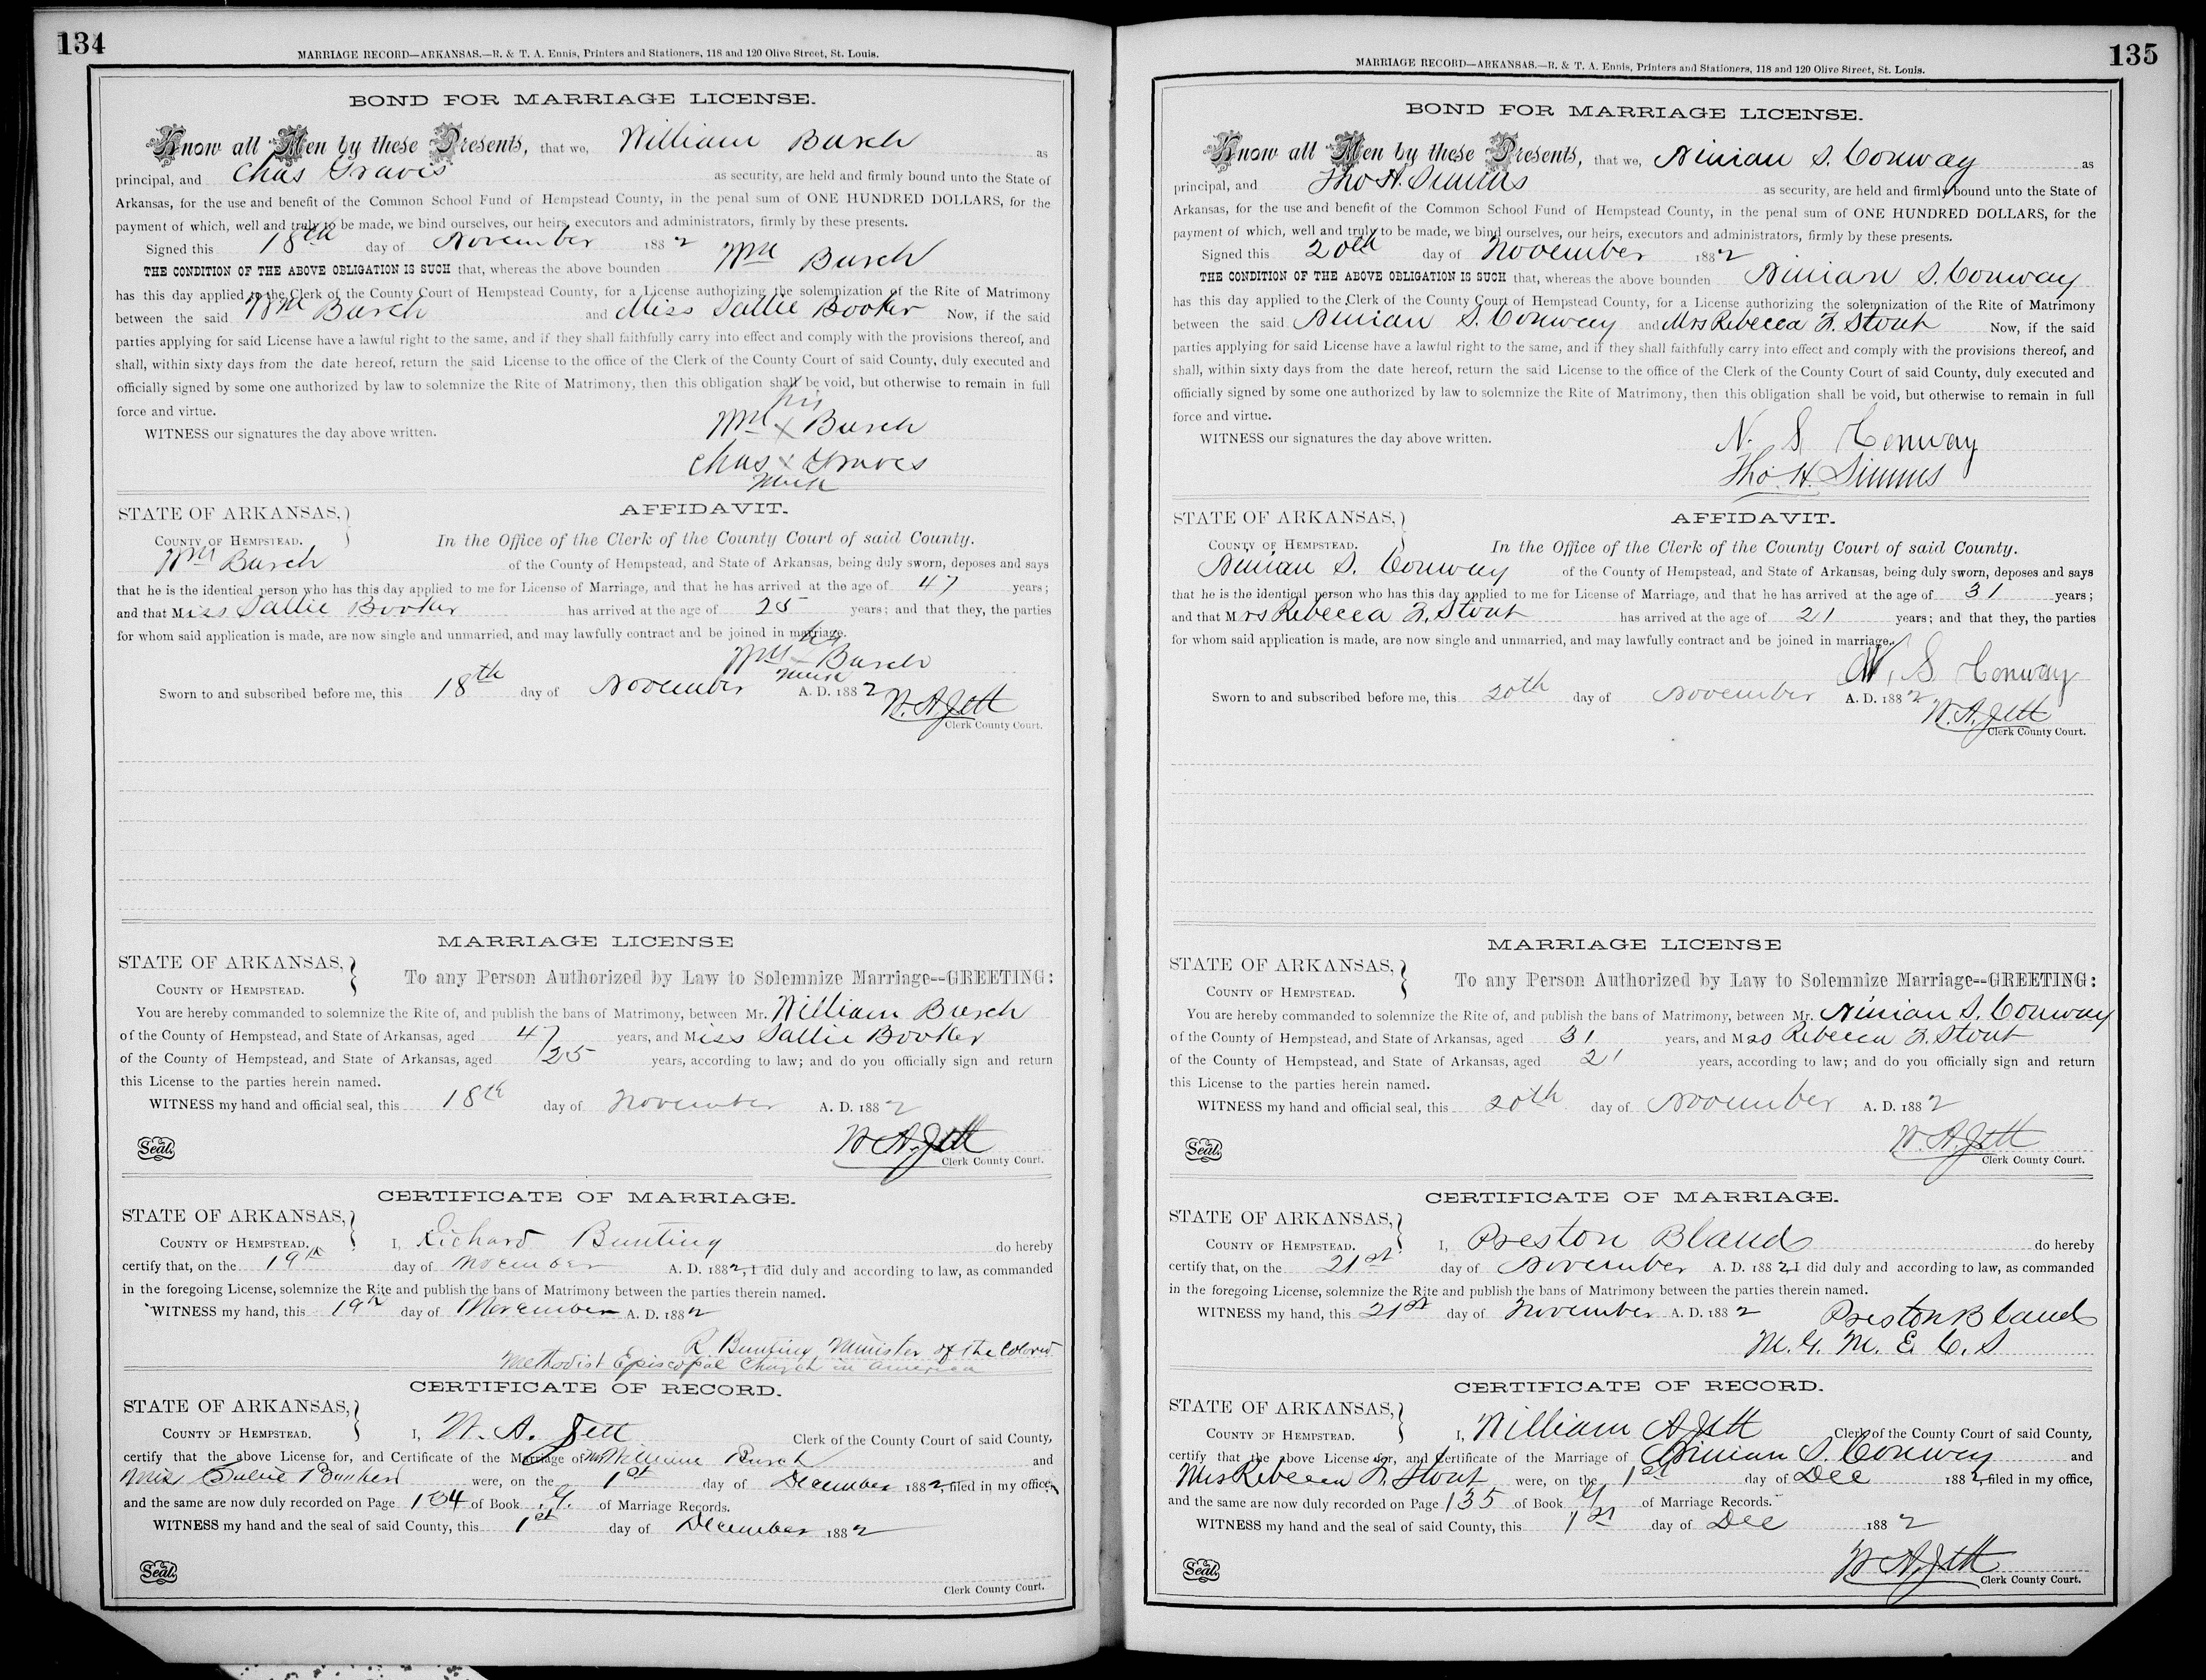 134
MARRIAGE RECORD—ARKANSAS.—R. & T. A. Ennis, Printers and Stationers, 118 and 120 Olive Street, St. Louis.
BOND FOR MARRIAGE LICENSE.
Know all Men by these Presents, that we, William Busch as
principal, and Chas Travis as security, are held and firmly bound unto the State of
Arkansas, for the use and benefit of the Common School Fund of Hempstead County, in the penal sum of ONE HUNDRED DOLLARS, for the
payment of which, well and truly to be made, we bind ourselves, our heirs, executors and administrators, firmly by these presents.
Signed this 18th day of November 1882
THE CONDITION OF THE ABOVE OBLIGATION IS SUCH that, whereas the above bounden Wm Busch
has this day applied to the Clerk of the County Court of Hempstead County, for a License authorizing the solemnization of the Rite of Matrimony
between the said Wm Busch and Miss Sallie Booker Now, if the said
parties applying for said License have a lawful right to the same, and if they shall faithfully carry into effect and comply with the provisions thereof, and
shall, within sixty days from the date hereof, return the said License to the office of the Clerk of the County Court of said County, duly executed and
officially signed by some one authorized by law to solemnize the Rite of Matrimony, then this obligation shall be void, but otherwise to remain in full
force and virtue.
his
WITNESS our signatures the day above written.
Wm x Busch
Chas x Graves
mark
AFFIDAVIT.
STATE OF ARKANSAS,
COUNTY OF HEMPSTEAD.
In the Office of the Clerk of the County Court of said County.
Wm Busch of the County of Hempstead, and State of Arkansas, being duly sworn, deposes and says
that he is the identical person who has this day applied to me for License of Marriage, and that he has arrived at the age of 47 years;
and that Miss Sallie Booker has arrived at the age of 25 years; and that they, the parties
for whom said application is made, are now single and unmarried, and may lawfully contract and be joined in marriage.
his
Wm x Busch
mark
Sworn to and subscribed before me, this 18th day of November A. D. 1882
W. A. Jett
Clerk County Court.
MARRIAGE LICENSE
STATE OF ARKANSAS,
COUNTY OF HEMPSTEAD.
To any Person Authorized by Law to Solemnize Marriage--GREETING:
You are hereby commanded to solemnize the Rite of, and publish the bans of Matrimony, between Mr. William Busch
of the County of Hempstead, and State of Arkansas, aged 47 years, and Miss Sallie Booker
of the County of Hempstead, and State of Arkansas, aged 25 years, according to law; and do you officially sign and return
this License to the parties herein named.
WITNESS my hand and official seal, this 18th day of November A. D. 1882
Seal.
W. A. Jett
Clerk County Court.
CERTIFICATE OF MARRIAGE.
STATE OF ARKANSAS,
COUNTY OF HEMPSTEAD.
I, Richard Bunting do hereby
certify that, on the 19th day of November A. D. 1882, I did duly and according to law, as commanded
in the foregoing License, solemnize the Rite and publish the bans of Matrimony between the parties therein named.
WITNESS my hand, this 19th day of November A. D. 1882
R. Bunting Minister of the Colored
Methodist Episcopal Church in America
CERTIFICATE OF RECORD.
STATE OF ARKANSAS,
COUNTY OF HEMPSTEAD.
I, W. A. Jett Clerk of the County Court of said County,
certify that the above License for, and Certificate of the Marriage of Mr William Busch and
Miss Sallie Booker were, on the 1st day of December 1882, filed in my office,
and the same are now duly recorded on Page 134 of Book G. of Marriage Records.
WITNESS my hand and the seal of said County, this 1st day of December 1882
Seal.
Clerk County Court.
135
MARRIAGE RECORD—ARKANSAS.—R. & T. A. Ennis, Printers and Stationers, 118 and 120 Olive Street, St. Louis.
BOND FOR MARRIAGE LICENSE.
Know all Men by these Presents, that we, Ninian S. Conway as
principal, and Tho H. Simms as security, are held and firmly bound unto the State of
Arkansas, for the use and benefit of the Common School Fund of Hempstead County, in the penal sum of ONE HUNDRED DOLLARS, for the
payment of which, well and truly to be made, we bind ourselves, our heirs, executors and administrators, firmly by these presents.
Signed this 20th day of November 1882
THE CONDITION OF THE ABOVE OBLIGATION IS SUCH that, whereas the above bounden Ninian S. Conway
has this day applied to the Clerk of the County Court of Hempstead County, for a License authorizing the solemnization of the Rite of Matrimony
between the said Ninian S. Conway and Mrs Rebecca F. Stout Now, if the said
parties applying for said License have a lawful right to the same, and if they shall faithfully carry into effect and comply with the provisions thereof, and
shall, within sixty days from the date hereof, return the said License to the office of the Clerk of the County Court of said County, duly executed and
officially signed by some one authorized by law to solemnize the Rite of Matrimony, then this obligation shall be void, but otherwise to remain in full
force and virtue.
WITNESS our signatures the day above written.
N. S Conway
Tho. H. Simms
AFFIDAVIT.
STATE OF ARKANSAS,
COUNTY OF HEMPSTEAD.
In the Office of the Clerk of the County Court of said County.
Ninian S. Conway of the County of Hempstead, and State of Arkansas, being duly sworn, deposes and says
that he is the identical person who has this day applied to me for License of Marriage, and that he has arrived at the age of 31 years;
and that Mrs Rebecca F. Stout has arrived at the age of 21 years; and that they, the parties
for whom said application is made, are now single and unmarried, and may lawfully contract and be joined in marriage.
N. S Conway
Sworn to and subscribed before me, this 20th day of November A. D. 1882
W. A. Jett
Clerk County Court.
MARRIAGE LICENSE
STATE OF ARKANSAS,
COUNTY OF HEMPSTEAD.
To any Person Authorized by Law to Solemnize Marriage--GREETING:
You are hereby commanded to solemnize the Rite of, and publish the bans of Matrimony, between Mr. Ninian S. Conway
of the County of Hempstead, and State of Arkansas, aged 31 years, and Mrs Rebecca F. Stout
of the County of Hempstead, and State of Arkansas, aged 21 years, according to law; and do you officially sign and return
this License to the parties herein named.
WITNESS my hand and official seal, this 20th day of November A. D. 1882
Seal.
W. A. Jett
Clerk County Court.
CERTIFICATE OF MARRIAGE.
STATE OF ARKANSAS,
COUNTY OF HEMPSTEAD.
I, Preston Bland do hereby
certify that, on the 21st day of November A. D. 1882, I did duly and according to law, as commanded
in the foregoing License, solemnize the Rite and publish the bans of Matrimony between the parties therein named.
WITNESS my hand, this 21st day of November A. D. 1882
Preston Bland
M. G. M. E. C. S
CERTIFICATE OF RECORD.
STATE OF ARKANSAS,
COUNTY OF HEMPSTEAD.
I, William A Jett Clerk of the County Court of said County,
certify that the above License for, and Certificate of the Marriage of Ninian S. Conway and
Mrs Rebecca F. Stout were, on the 1st day of Dec 1882, filed in my office,
and the same are now duly recorded on Page 135 of Book G of Marriage Records.
WITNESS my hand and the seal of said County, this 1st day of Dec 1882
Seal.
W A. Jett
Clerk County Court.